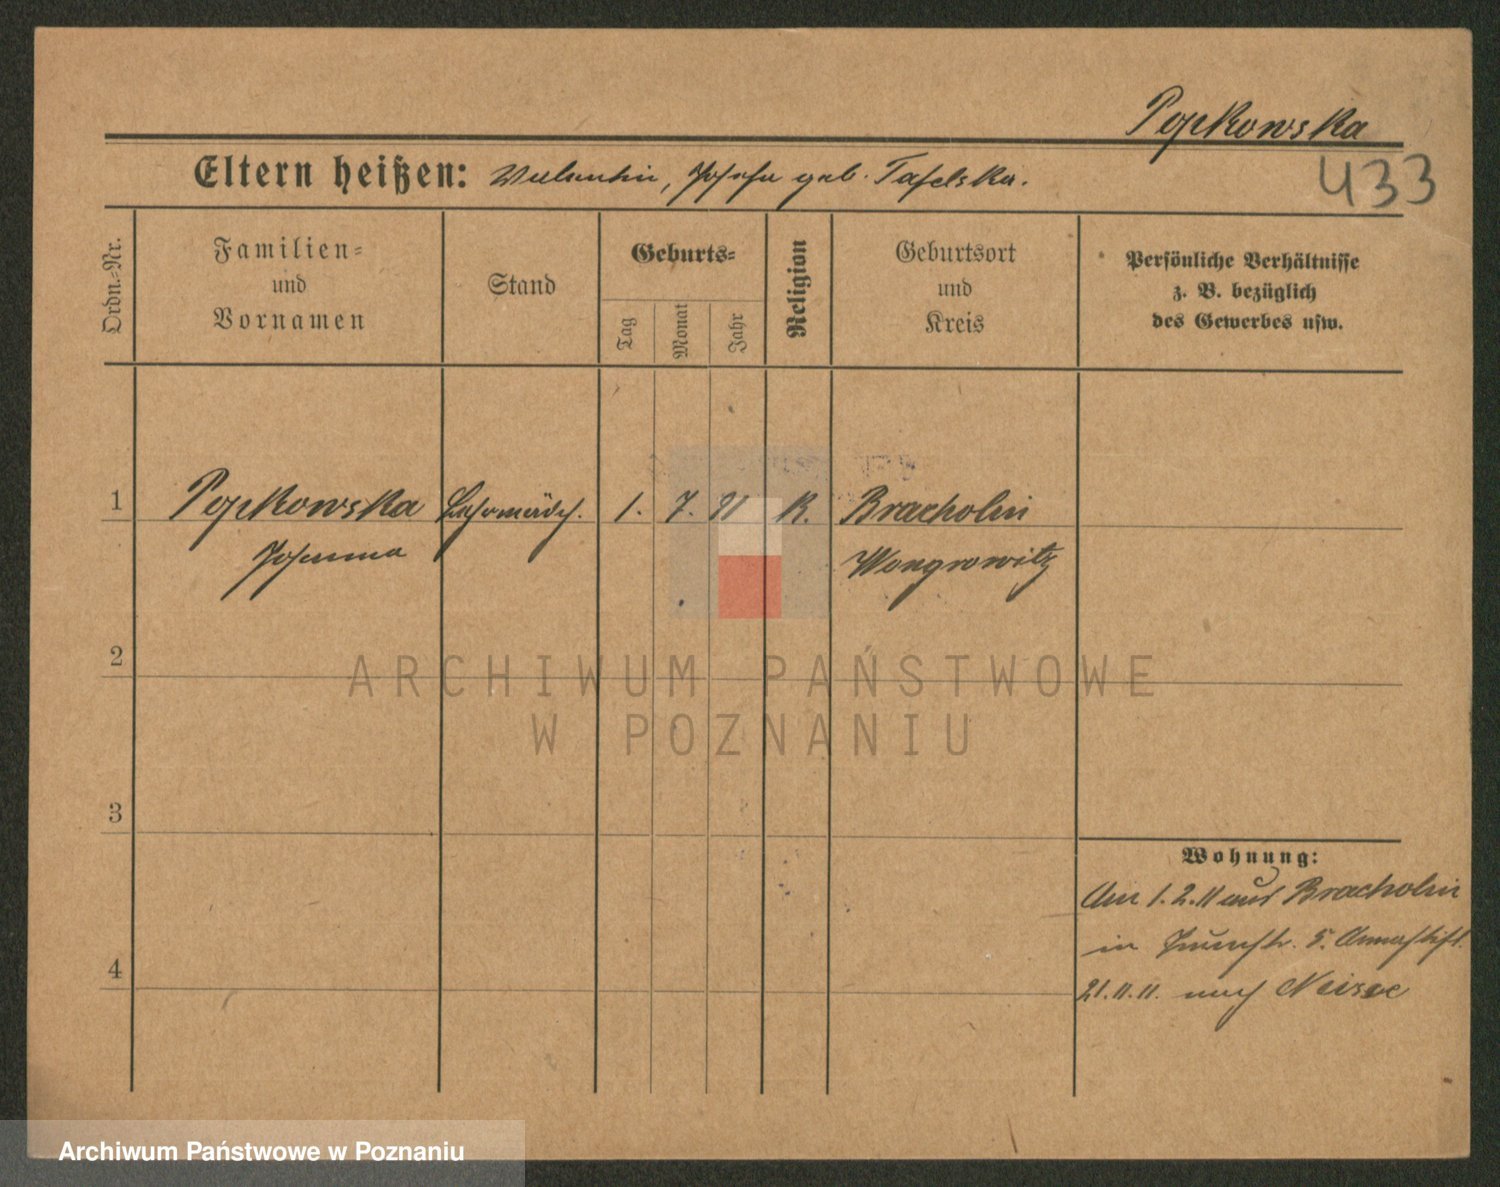 Popkowska
433
Eltern heißen: Valentin, Josefa geb. Tafelska.
Ordn.-Nr.
Familien-
und
Vornamen
Stand
Geburts-
Tag
Monat
Jahr
Religion
Geburtsort
und
Kreis
Persönliche Verhältnisse
z. B. bezüglich
des Gewerbes usw.
1 Popkowska Lehrmädch. 1. 7. 91 K. Bracholin
Johanna Wongrowitz
2
3
4
Wohnung:
Am 1.2.11 aus Bracholin
in 5. Annastift.
21.11.11. nach Neisse
ARCHIWUM PAŃSTWOWE
W POZNANIU
Archiwum Państwowe w Poznaniu